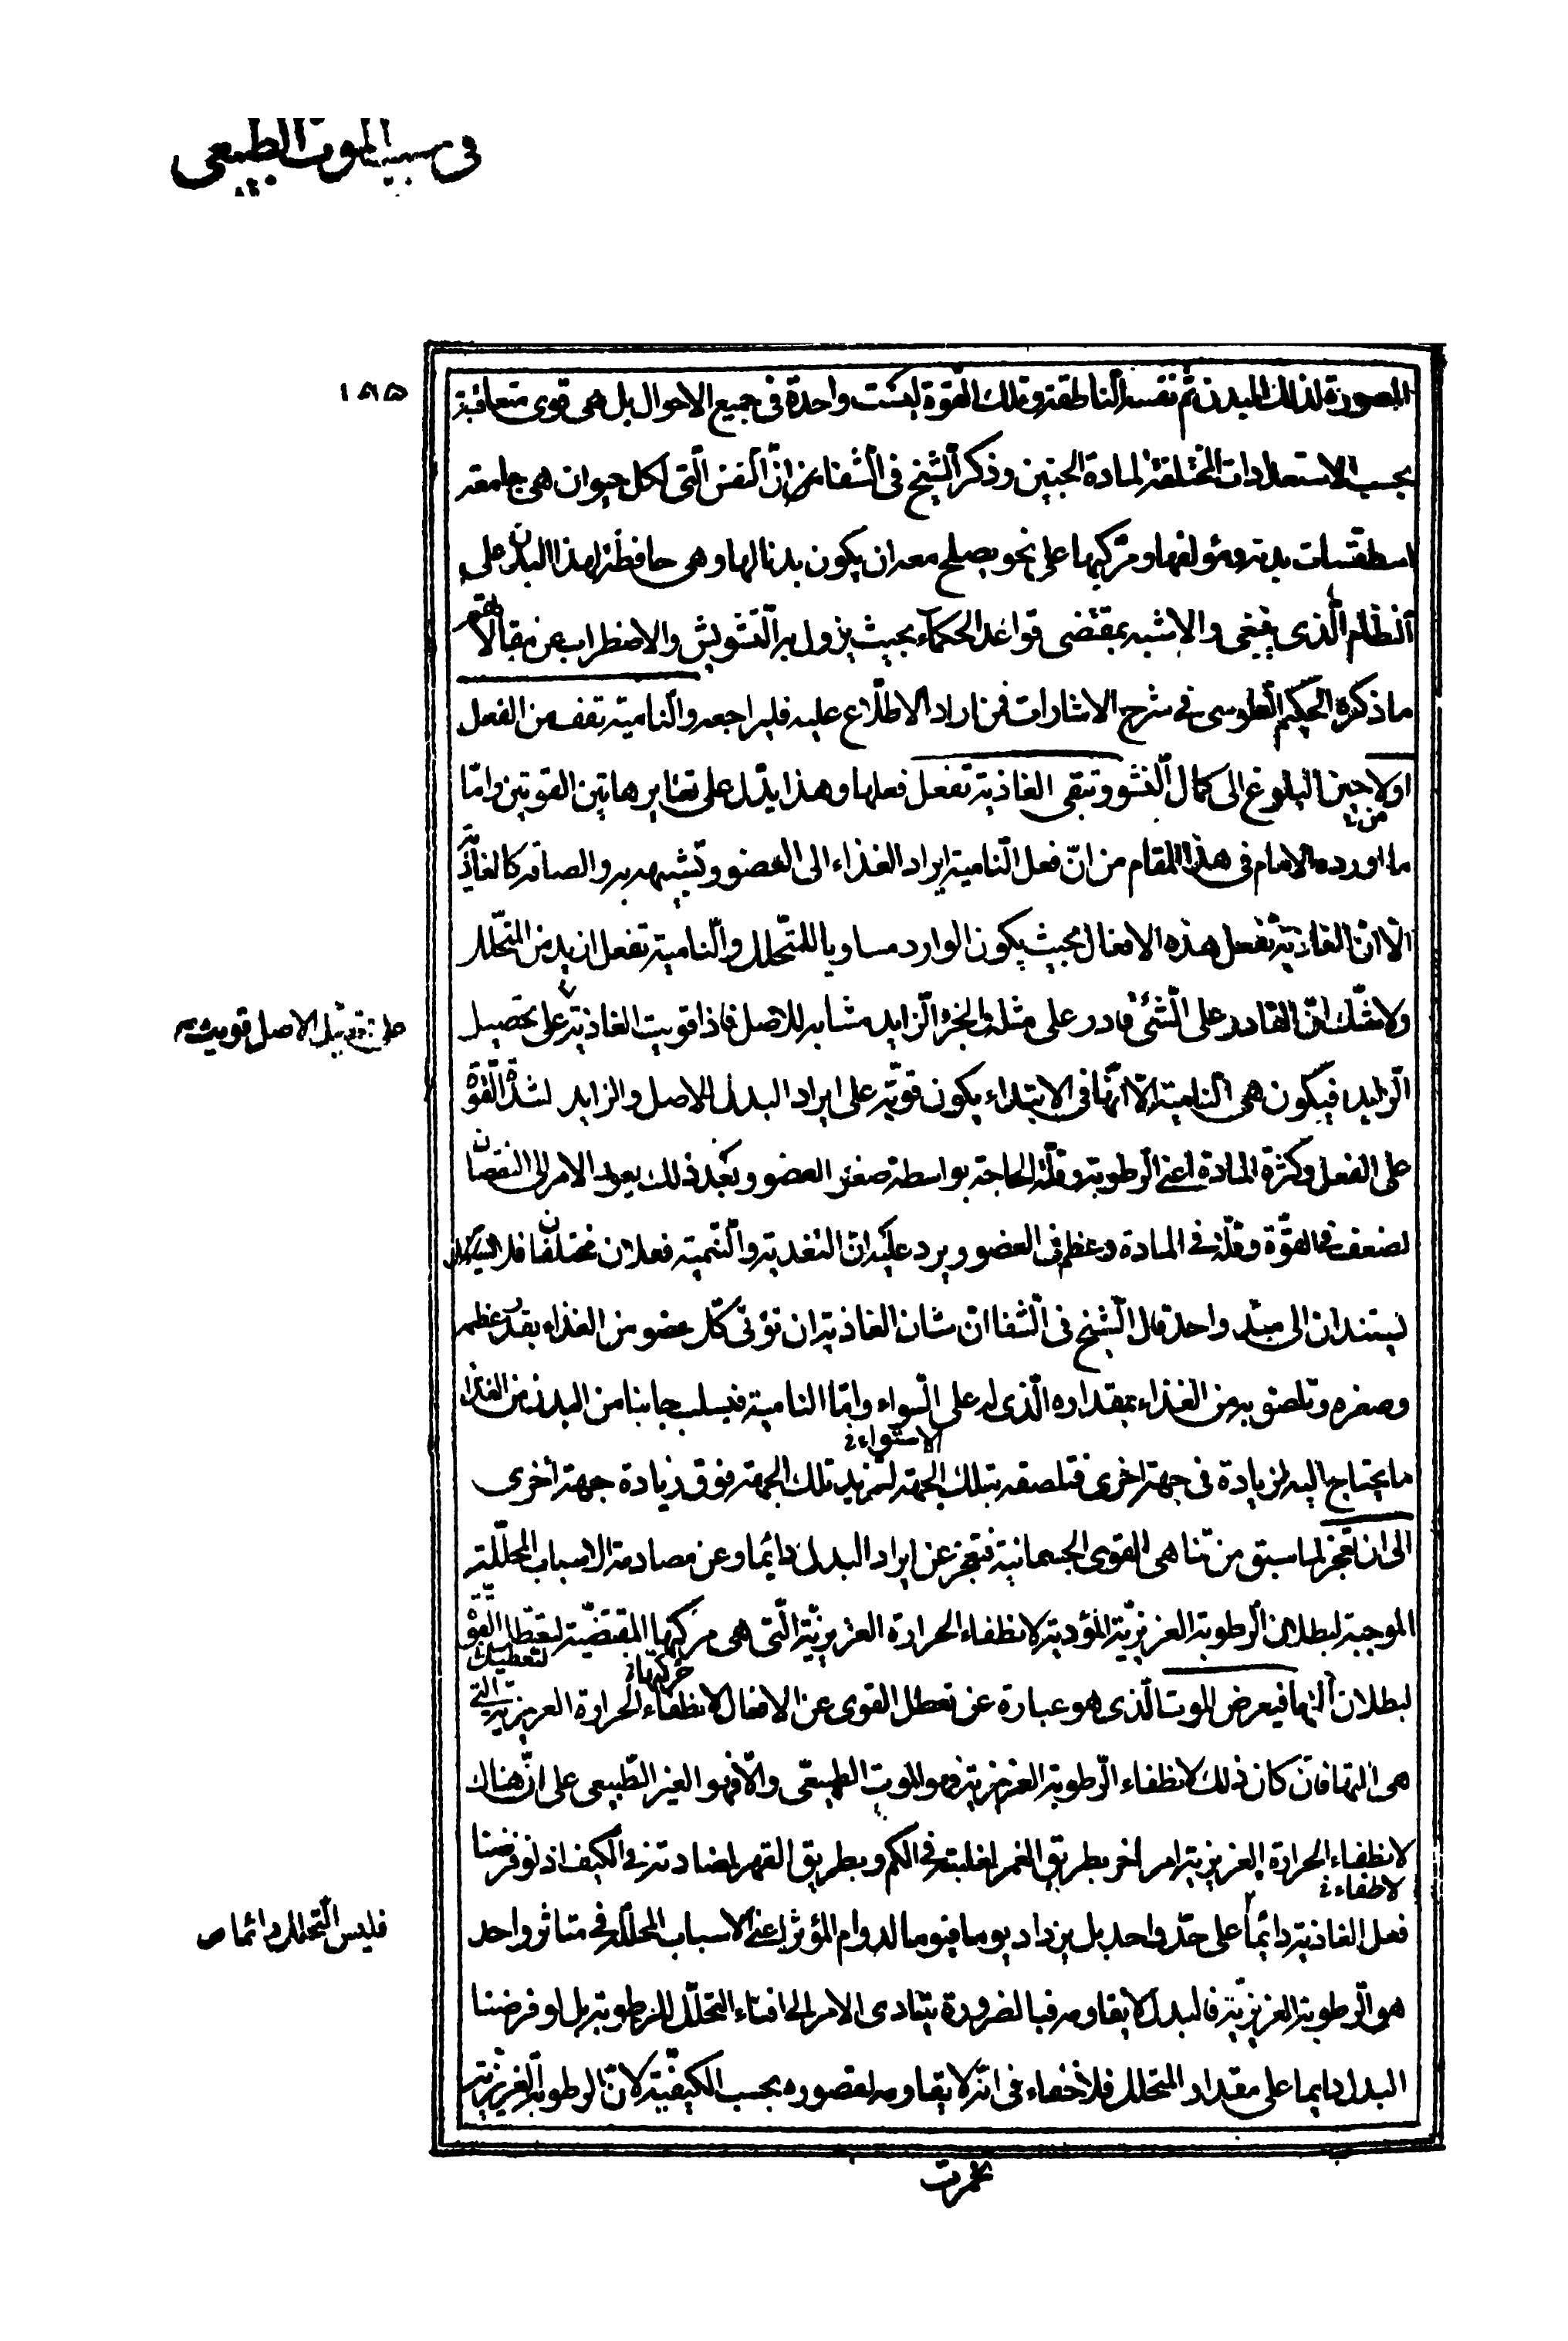 في سبب الموت الطبيعي
١٨٥
المصورة لذلك البدن ثم نفسه الناطقة وتلك القوة ليست واحدة في جميع الاحوال بل هي قوى متعاقبة
بحسب الاستعدادات المختلفة لمادة الجنين وذكر الشيخ في الشفا ان النفس التي لكل حيوان هي جامعة
اسطقسات بدنه ومؤلفها ومركبها على نحو يصلح معه ان يكون بدنا لها وهي حافظة لهذا البدن على
النظام الذي ينبغي والاشبه بمقتضى قواعد الحكماء بحيث يزول به التشويش والاضطراب عن مقالاتهم
ما ذكره الحكيم الطوسي في شرح الاشارات فمن اراد الاطلاع عليه فليراجعه والنامية تقف من الفعل
اولا حين البلوغ الى كمال النشو وتبقى الغاذية تفعل فعلها وهذا يدل على تغاير هاتين القوتين واما
من
ما اورده الامام في هذا المقام من ان فعل النامية ايراد الغذاء الى العضو وتشبيهه به والصاقه كالغاذية
الا ان الغاذية تفعل هذه الافعال بحيث يكون الوارد مساويا للمتحلل والنامية تفعل ازيد من المتحلل
ولا شك ان القادر على الشئ قادر على مثله والجزء الزايد مشابه للاصل فاذا قويت الغاذية على تحصيل
الاصل قويت
الزايد فيكون هي النامية الا انها في الابتداء يكون قوية على ايراد البدل الاصل والزايد لشدة القوة
على الفعل وكثرة المادة اعني الرطوبة وقلة الحاجة بواسطة صغر العضو وبعد ذلك يعود الامر الى النقصان
لضعف في القوة وقلة في المادة وعظم في العضو ويرد عليه ان التغدية والتنمية فعلان مختلفان فلا
يستندان الى مبدء واحد قال الشيخ في الشفا ان شان الغاذية ان تؤتى كل عضو من الغذاء بقدر عظمه
وصغره وتلصق به من الغذاء بمقداره الذي له على السواء واما النامية فيسلب جانبا من البدن من الغذاء
الاستواء
ما يحتاج اليه لزيادة في جهة اخرى فتلصقه بتلك الجهة لتزيد تلك الجهة فوق زيادة جهة اخرى
الى ان تعجز لما سبق من تناهي القوى الجسمانية فتعجز عن ايراد البدل دائما وعن مصادمة الاسباب المحللة
الموجبة لبطلان الرطوبة الغريزية المؤدية لانطفاء الحرارة الغريزية التي هي مركبها المقتضية لتعطل القوة
لتعطيل
لبطلان آلتها فيعرض الموت الذي هو عبارة عن تعطل القوى عن الافعال لانطفاء الحرارة الغريزية التي
هي التها فان كان ذلك لانطفاء الرطوبة الغريزية فهو الموت الطبيعي والا فهو الغير الطبيعي على ان هناك
لانطفاء الحرارة الغريزية امر اخر بطريق الغمر لغلبته في الكم وبطريق القهر لمضادته في الكيف اذ لو فرضنا
لاطفاء
فعل الغاذية دائما على حد واحد بل يزداد يوما فيوما لدوام المؤثر اعني الاسباب المحللة في متاثر واحد
فليس التحلل دائما ص
هو الرطوبة الغريزية فالبدل لا يقاومه فبالضرورة يتادى الامر الى افناء التحلل للرطوبة بل لو فرضنا
البدل دايما على مقدار المتحلل فلا خفاء في انه لا يقاومه لقصوره بحسب الكيفية لان الرطوبة الغريزية
تخمرت